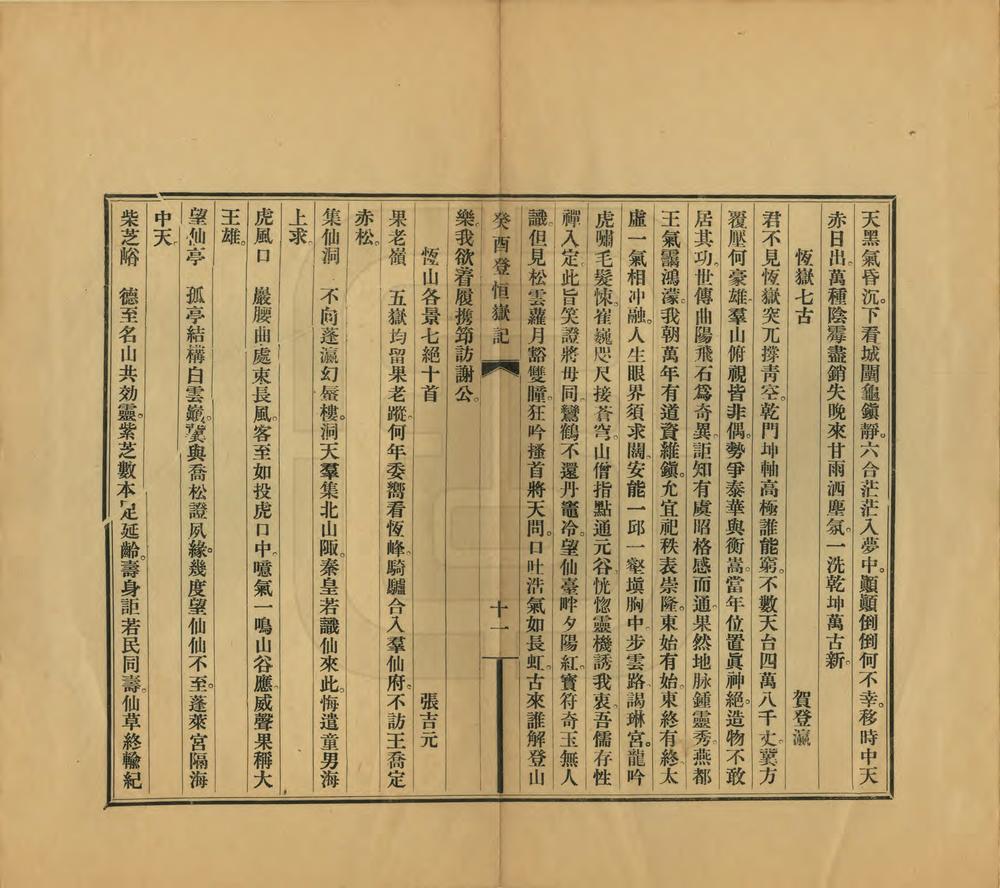 天黑氣昏沉。下看城闉龜鎭靜。六合茫茫入夢中。顚顚倒倒何不幸。移時中天
赤日出。萬種陰霾盡銷失。晚來甘雨洒塵氛。一洗乾坤萬古新。
恆嶽七古　賀登瀛
君不見恆嶽突兀撐靑空。乾門坤軸高極誰能窮。不數天台四萬八千丈。冀方
覆壓何豪雄。羣山俯視皆非偶。勢爭泰華與衡嵩。當年位置眞神絕。造物不敢
居其功。世傳曲陽飛石爲奇異。詎知有虞昭格感而通。果然地脉鍾靈秀。燕都
王氣靄鴻濛。我朝萬年有道資維鎭。允宜祀秩表崇隆。東始有始。東終有終。太
虛一氣相冲融。人生眼界須求闊。安能一邱一壑塡胸中。步雲路。謁琳宮。龍吟
虎嘯毛髮悚。崔巍咫尺接蒼穹。山僧指點通元谷。恍惚靈機誘我衷。吾儒存性
禪入定。此旨笑證將毋同。鸞鶴不還丹竈冷。望仙臺畔夕陽紅。寶符奇玉無人
識。但見松雲蘿月豁雙瞳。狂吟搔首將天問。口吐浩氣如長虹。古來誰解登山
癸酉登恒嶽記　十一
樂。我欲着履携筇訪謝公。
恆山各景七絕十首　張吉元
果老嶺　五嶽均留果老蹤。何年委嚮看恆峰。騎驢合入羣仙府。不訪王喬定
赤松。
集仙洞　不向蓬瀛幻蜃樓。洞天羣集北山陬。秦皇若識仙來此。悔遣童男海
上求。
虎風口　巖腰曲處束長風。客至如投虎口中。噫氣一鳴山谷應。威聲果稱大
王雄。
望仙亭　孤亭結構白雲巔。冀與喬松證夙緣。幾度望仙仙不至。蓬萊宮隔海
中天。
柴芝峪　德至名山共効靈。紫芝數本足延齡。壽身詎若民同壽。仙草終輸紀